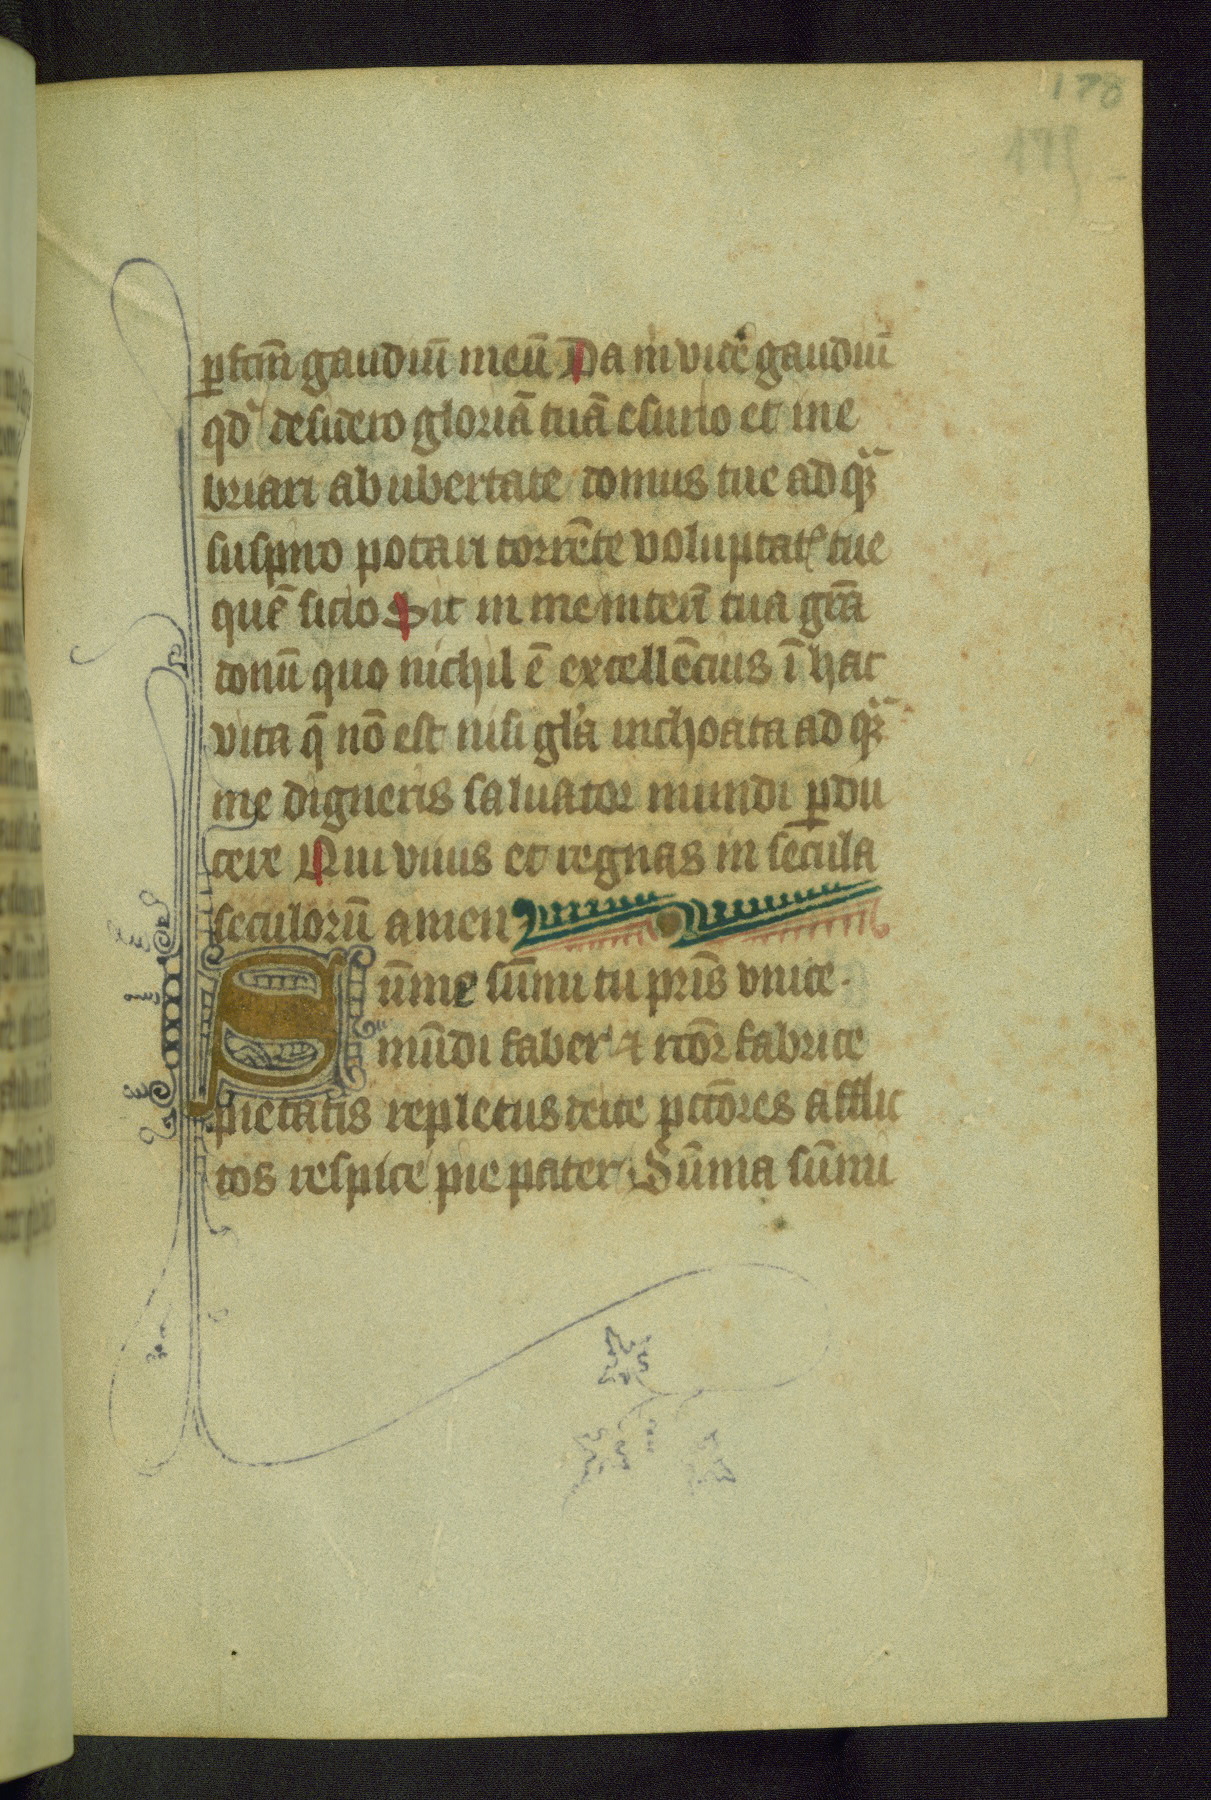 178
175
ꝑfcm̄ gaudiū meū Da m vicē gaudiū
qd' desidero gloriā tuā esurio et ine
briari ab ubertate domus tue ad q̄
suspiro potari torrēte voluptatꝭ tue
quē sicio Sit in me interī tua grā
donū quo nichil ē excellēcius ī hac
vita q̄ nō est nisi gl'a inchoata ad q̄
me digneris saluator mundi ꝑdu
cere Qui viuis et regnas in secula
seculorū amen
Sūme sūmi tu pris̄ vnice
mūdi faber et rcōr fabrice
pietatis repletus deice pctōres afflic
tos respice pie pater Sūma sūmi